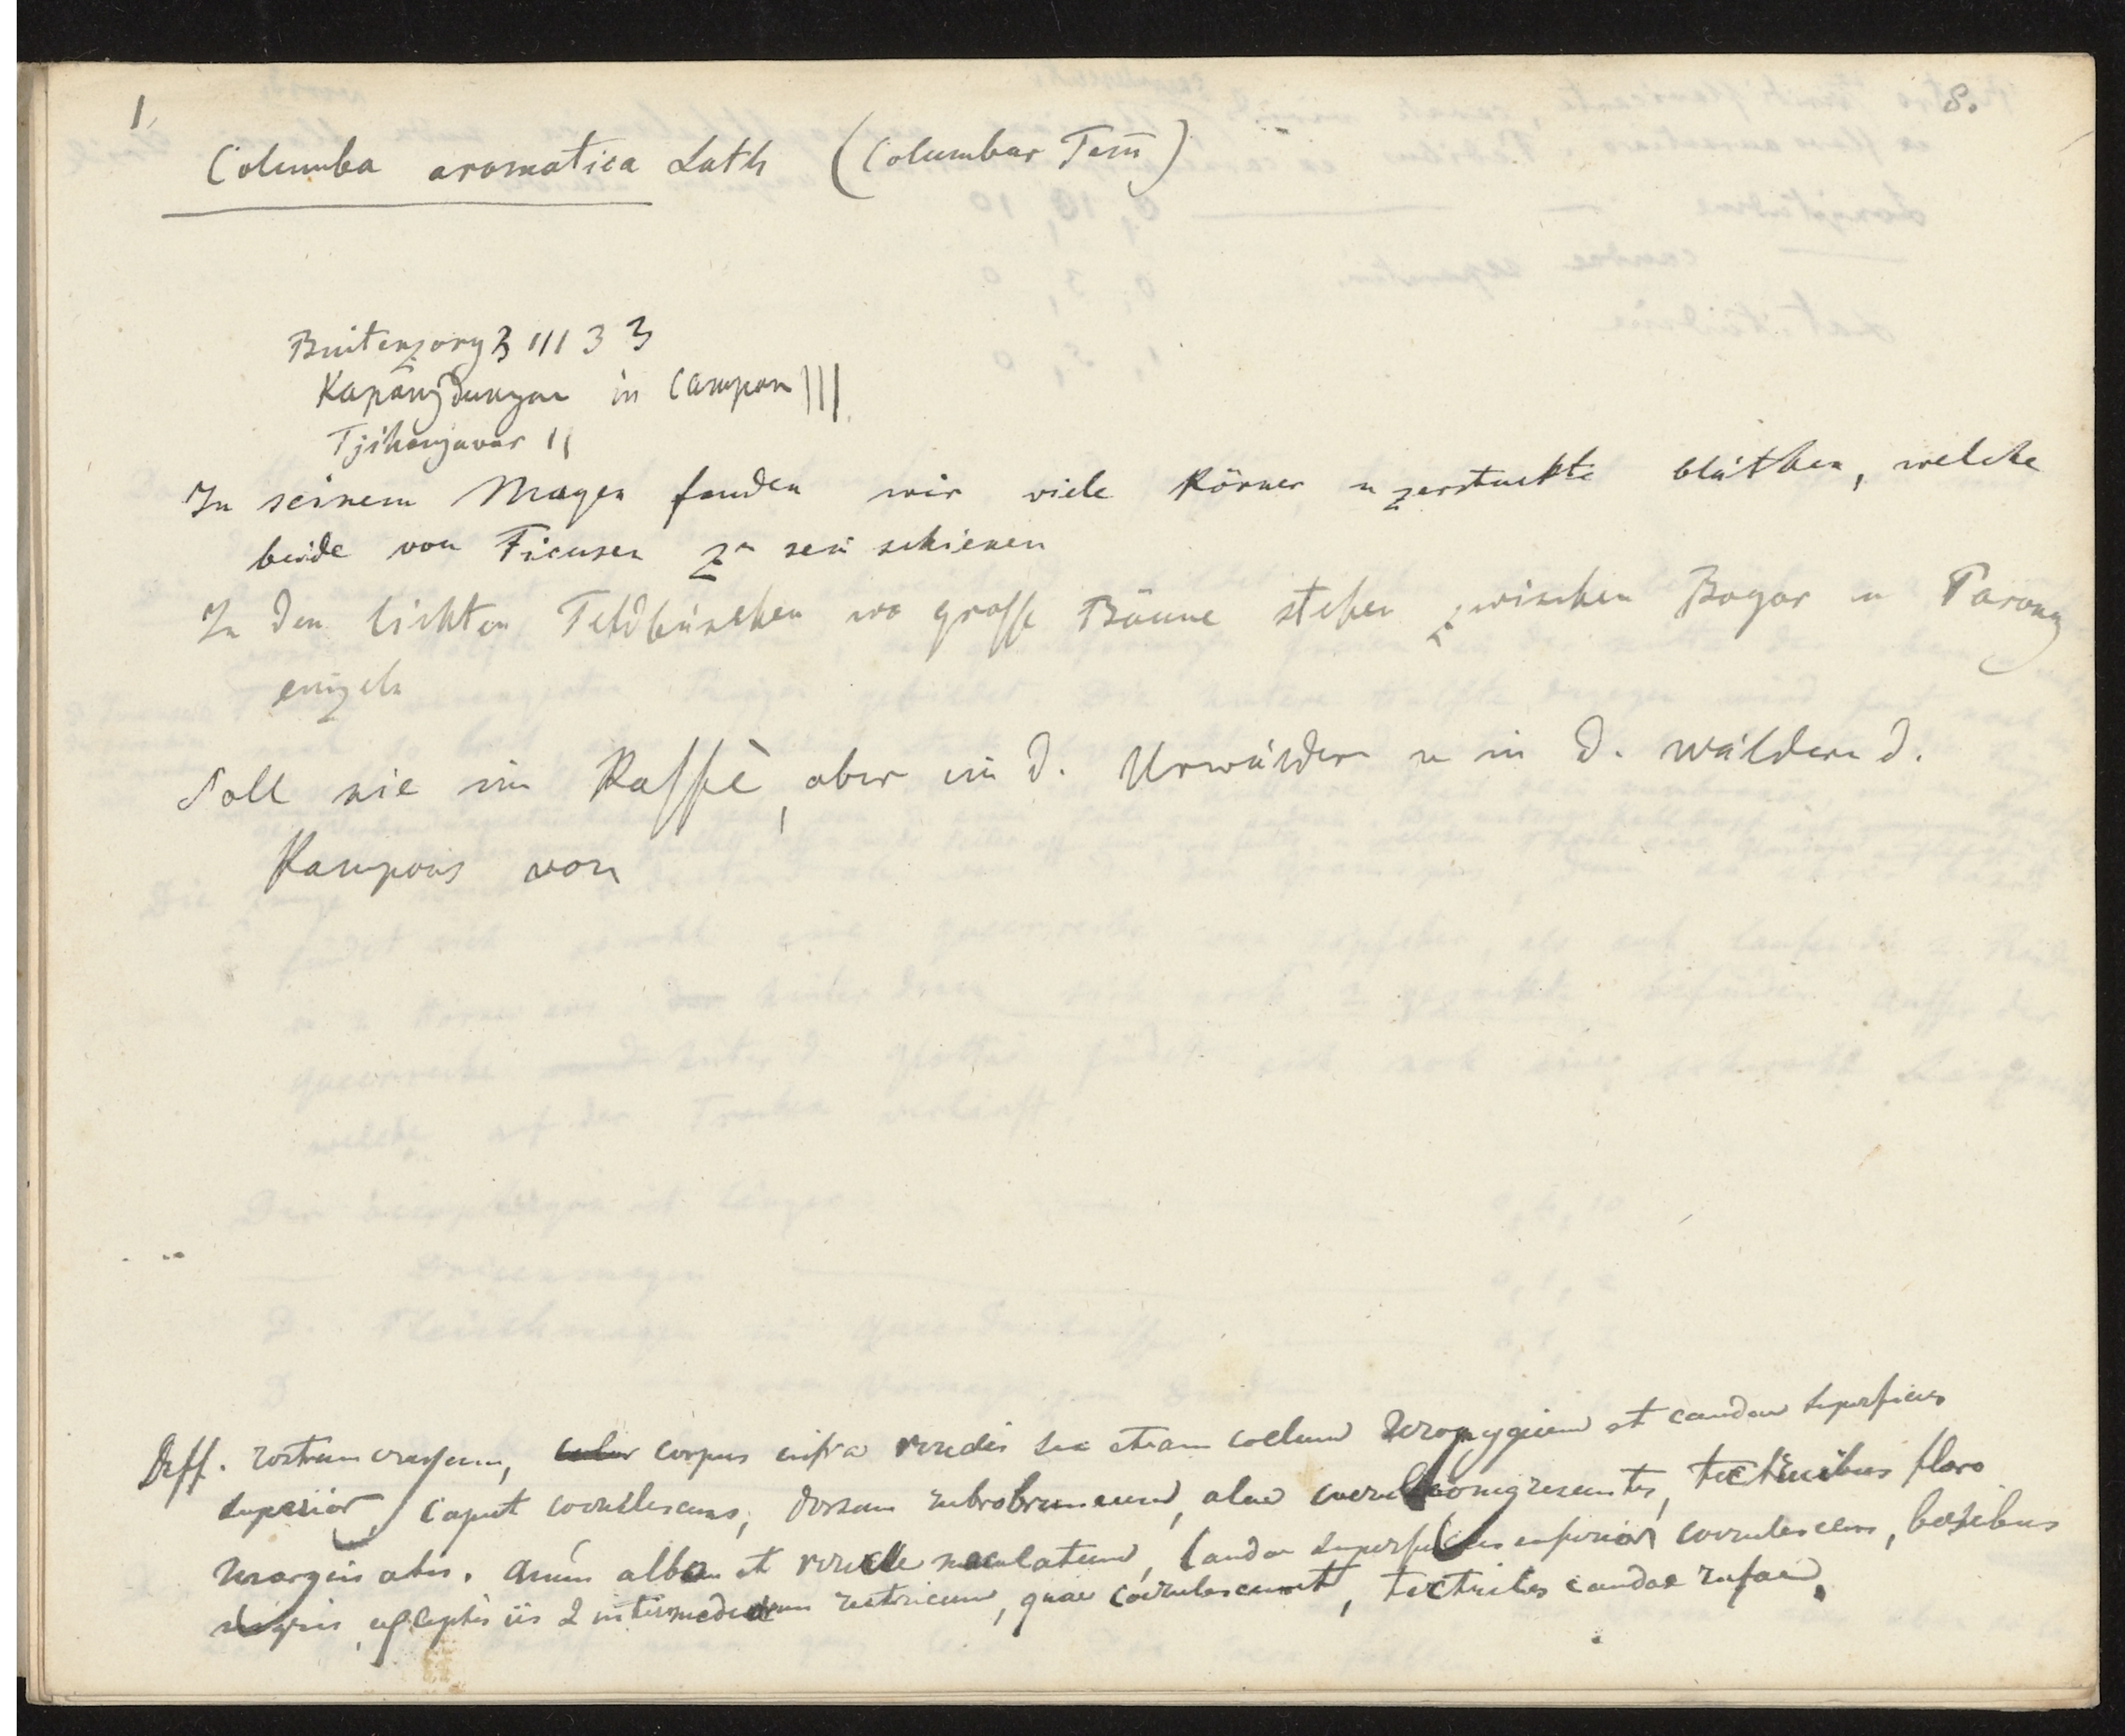 1,
8.
Columba aromatica Lath (Columbar Tem̄)
Buitenzorg 3 111 3 3
Kapangdungan in Campon |||
Tjihanjavar 11
In seinem Magen fanden wir viele Körner u zerstückte blüthen, welche
beide von Ficusen zu sein schienen
In den lichten Feldbüschen wo grosse Bäume stehen zwischen Bogor u Parong
einzeln
Soll nie im Kaffè, aber in d. Urwäldern u in d. wäldern d.
Kampons vor
Diff. rostrum crassum, corpus infra viride sic etiam collum uropygium et caudae superficies
superior, Caput coerulescens, dorsum rubrobruneum, alae coeruleonigrescentes, tectricibus flavo
marginatis. anus albo et viride maculatum, Caudae superficies inferior coerulescens, basibus
nigris, exceptis iis 2 intermediarum rectricum, quae coerulescunt, tectrices caudae rufae.